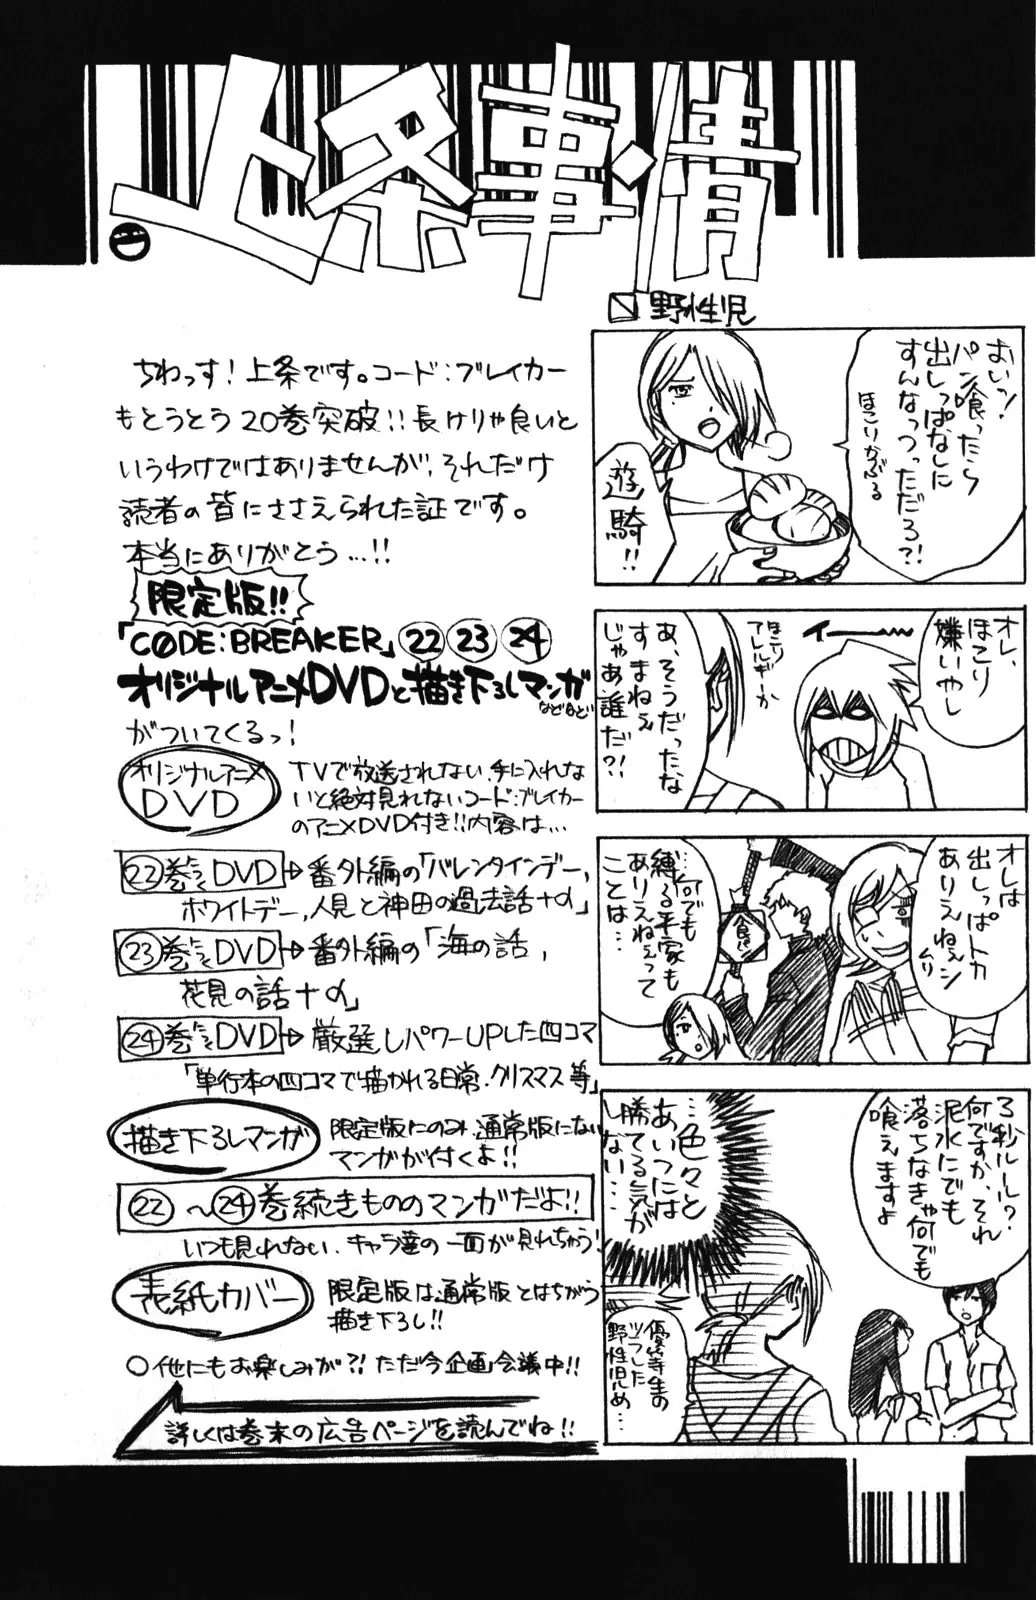 上条事情
野性児
ちわっす!上条です。コード:ブレイカー
もとうとう20巻突破!!長けりゃ良いと
いうわけではありませんが、それだけ
読者の皆にささえられた証です。
本当にありがとう…!!
限定版!!
「CØDE:BREAKER」㉒㉓㉔
オリジナルアニメDVDと描き下ろしマンガ
などなど
がついてくるっ!
オリジナルアニメ
DVD
TVで放送されない、手に入れな
いと絶対見れないコード:ブレイカー
のアニメDVD付き!!内容は…
㉒巻DVD→番外編の「バレンタインデー,
ホワイトデー,人見と神田の過去話+α」
㉓巻DVD→番外編の「海の話,
花見の話+α」
㉔巻DVD→厳選しパワーUPした四コマ
「単行本の四コマで描かれる日常・クリスマス等」
描き下ろしマンガ
限定版にのみ、通常版にない
マンガが付くよ!!
㉒～㉔巻続きもののマンガだよ!!
いつも見れない、キャラ達の一面が見れちゃう!
表紙カバー
限定版は通常版とはちがう
描き下ろし!!
○他にもお楽しみが?!ただ今企画会議中!!
詳しくは巻末の広告ページを読んでね!!
おいっ!
パン喰ったら
出しっぱなしに
すんなっつっただろ?!
ほこりかぶる
遊騎!!
オレ、
ほこり
嫌いやし
イー
ほこり
アレルギーか
あ、そうだったな
すまねぇ
じゃあ誰だ?!
オレは
出しっぱトカ
ありえねぇシ
ムリ
…何でも
縛る平家も
ありえねぇって
ことは…
食パン
3秒ルール?
何ですか、それ
泥水にでも
落ちなきゃ何でも
喰えますよ
…色々と
あいつには
勝てる気が
しない…
優等生の
ツラした
野性児め…